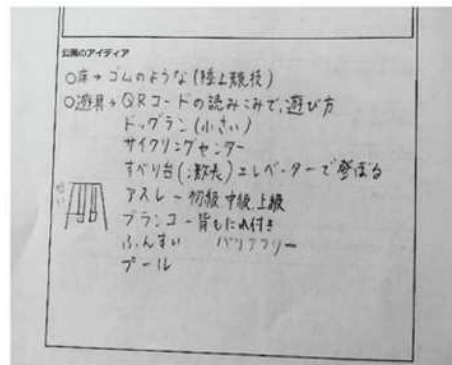 公園のアイディア
○床→ゴムのような(陸上競技)
○遊具→QRコードの読みこみで、遊び方
ドッグラン(小さい)
サイクリングセンター
すべり台(激長)エレベーターで登ぼる
アスレー初級 中級 上級
ブランコー背もたれ付き
ふんすい バリアフリー
プール